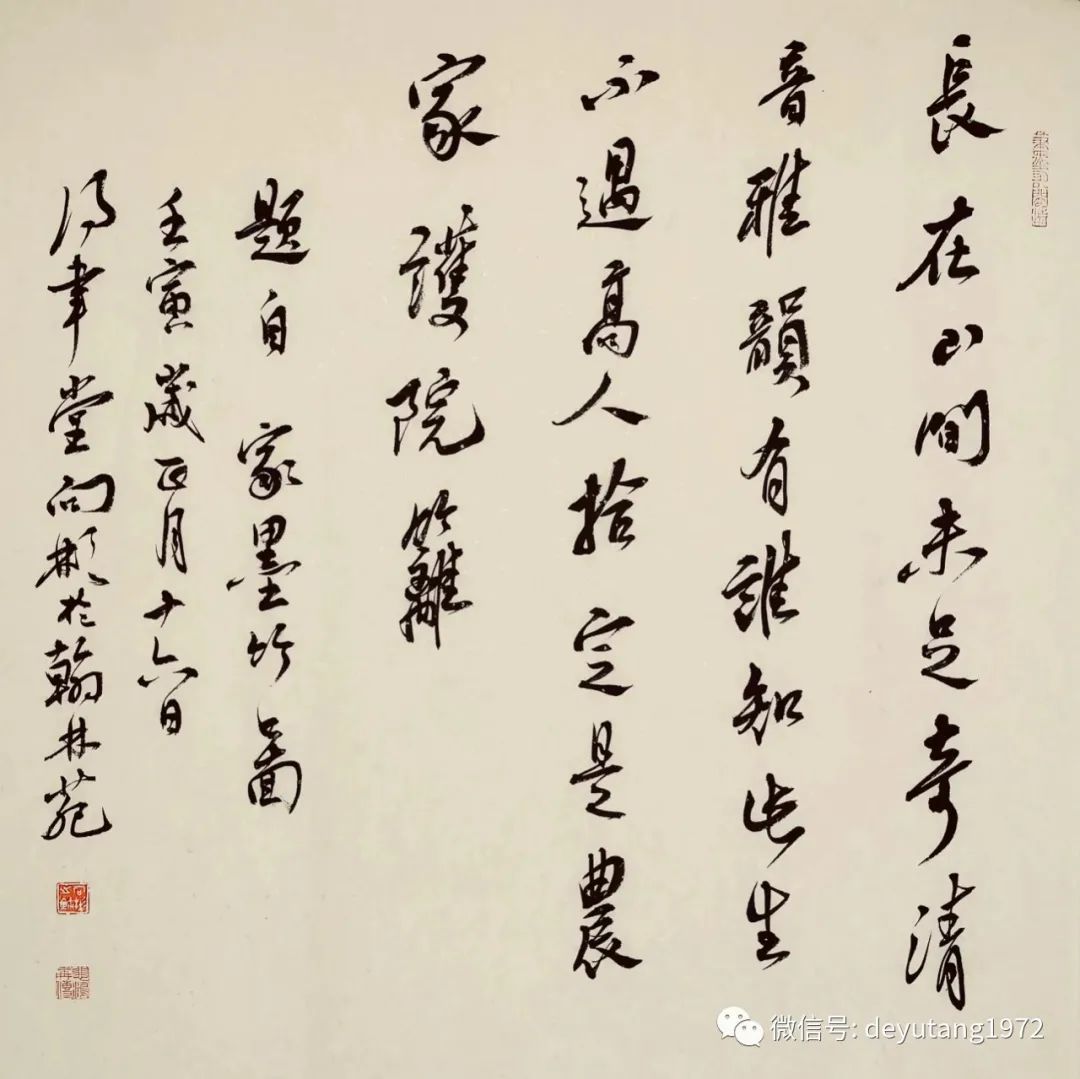 長在山間未足奇清
音雅韻有誰知此生
不遇高人拾定是農
家護院籬
題自家墨竹圖
壬寅歲正月十六日
得聿堂向彬於翰林苑
微信号: deyutang1972